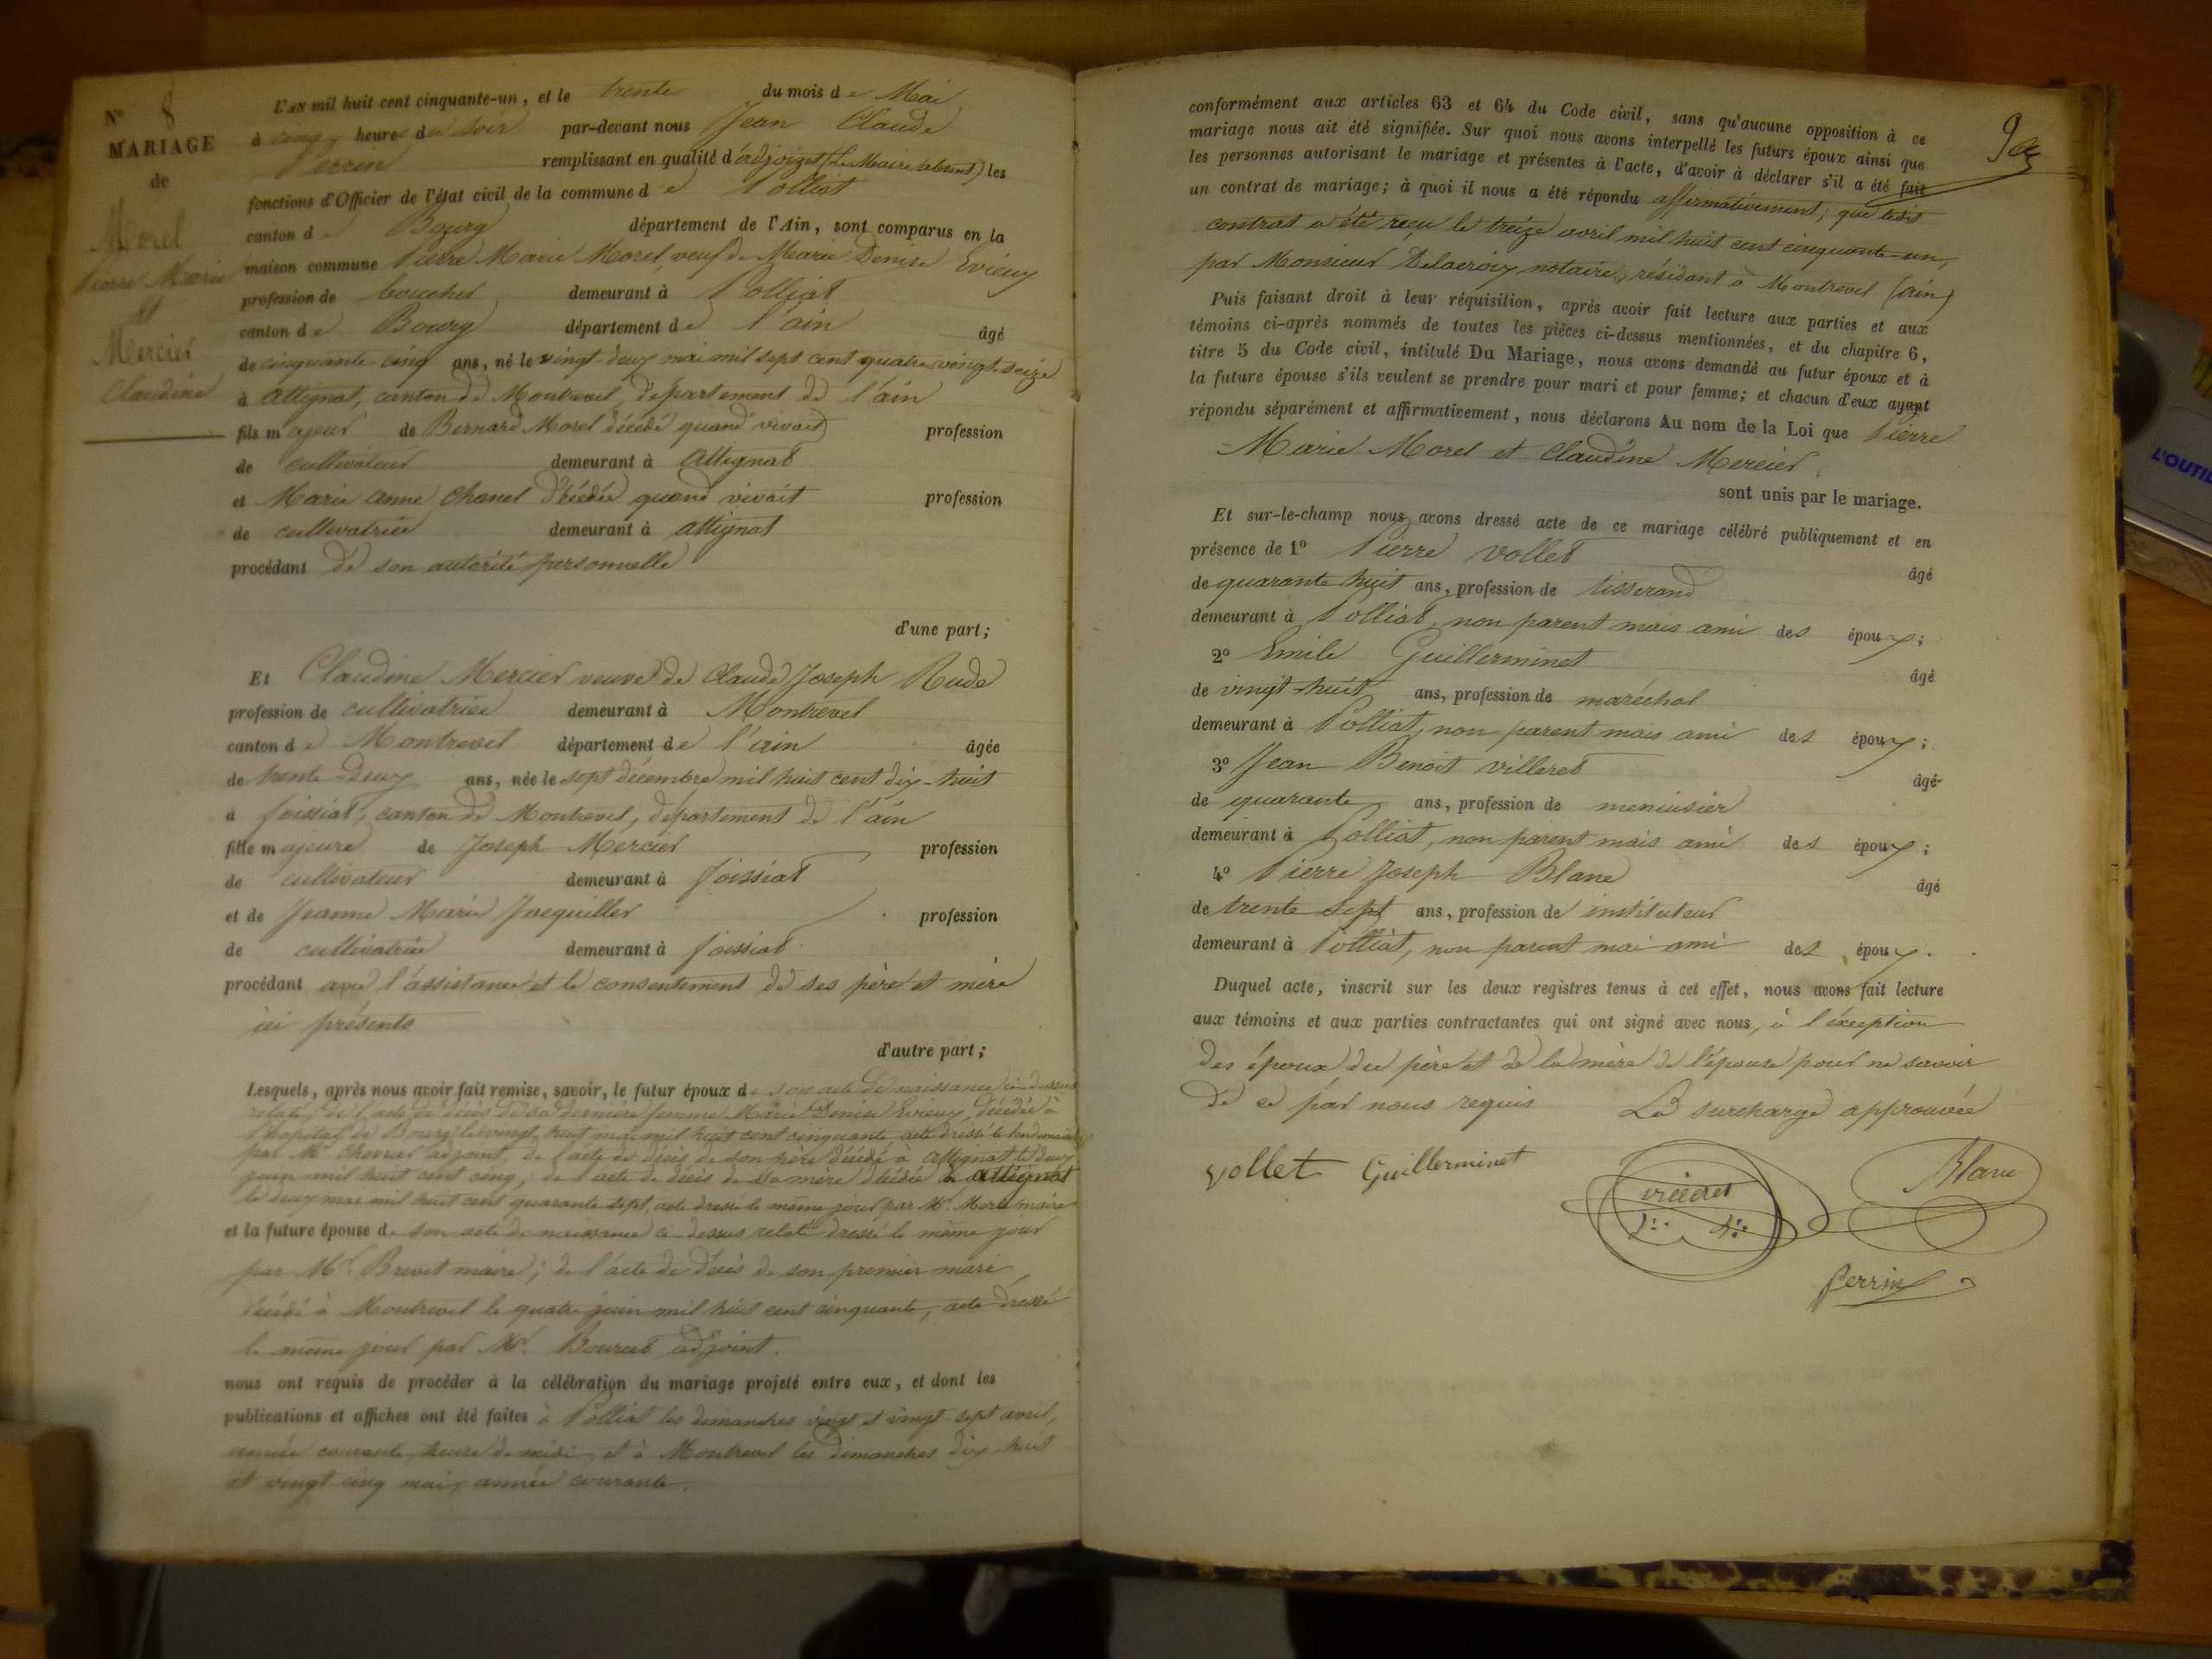 N° 8
MARIAGE
de
Morel
Pierre Marie
et
Mercier
Claudine
L'AN mil huit cent cinquante-un, et le trente du mois de Mai
à cinq heures du soir par-devant nous Jean Claude
Perrin remplissant en qualité d'adjoint (Le Maire absent) les
fonctions d'Officier de l'état civil de la commune de Polliat
canton de Bourg département de l'Ain, sont comparus en la
maison commune Pierre Marie Morel, veuf de Marie Denise Evieux
profession de boucher demeurant à Polliat
canton de Bourg département de l'ain âgé
de cinquante-cinq ans, né le vingt-deux mai mil sept cent quatre-vingt-seize
à Attignat, canton de Montrevel, département de l'ain
fils majeur de Bernard Morel décédé quand vivait profession
de cultivateur demeurant à Attignat
et Marie anne Chanel décédée quand vivait profession
de cultivatrice demeurant à attignat
procédant de son autorité personnelle
d'une part;
Et Claudine Mercier veuve de Claude Joseph Rude
profession de cultivatrice demeurant à Montrevel
canton de Montrevel département de l'ain âgée
de trente-deux ans, née le sept décembre mil huit cent dix-huit
à foissiat, canton de Montrevel, département de l'ain
fille majeure de Joseph Mercier profession
de cultivateur demeurant à foissiat
et de Jeanne Marie Jacquiller profession
de cultivatrice demeurant à foissiat
procédant avec l'assistance et le consentement de ses père et mère
ici présents
d'autre part;
Lesquels, après nous avoir fait remise, savoir, le futur époux de son acte de naissance ci-dessus
relaté, de l'acte de décès de sa dernière femme Marie Denise Evieux, décédée à
l'hôpital de Bourg le vingt-huit mai mil huit cent cinquante, acte dressé le lendemain
par Mr. Chevrier adjoint, de l'acte de décès de son père décédé à Attignat le deux
juin mil huit cent cinq, de l'acte de décès de sa mère décédée à attignat
le deux mai mil huit cent quarante sept, acte dressé le même jour par Mr. Morel maire
et la future épouse de son acte de naissance ci-dessus relaté dressé le même jour
par Mr. Brevet maire; de l'acte de décès de son premier mari
décédé à Montrevel le quatre juin mil huit cent cinquante, acte dressé
le même jour par Mr. Bourcet adjoint.
nous ont requis de procéder à la célébration du mariage projeté entre eux, et dont les
publications et affiches ont été faites à Polliat les dimanches vingt et vingt-sept avril,
année courante, heure de midi, et à Montrevel les dimanches dix-huit
et vingt cinq mai, année courante.
conformément aux articles 63 et 64 du Code civil, sans qu'aucune opposition à ce
mariage nous ait été signifiée. Sur quoi nous avons interpellé les futurs époux ainsi que
les personnes autorisant le mariage et présentes à l'acte, d'avoir à déclarer s'il a été fait
un contrat de mariage; à quoi il nous a été répondu affirmativement; que ledit
contrat a été reçu le treize avril mil huit cent cinquante-un,
par Monsieur Delacroix notaire, résidant à Montrevel (ain)
Puis faisant droit à leur réquisition, après avoir fait lecture aux parties et aux
témoins ci-après nommés de toutes les pièces ci-dessus mentionnées, et du chapitre 6,
titre 5 du Code civil, intitulé Du Mariage, nous avons demandé au futur époux et à
la future épouse s'ils veulent se prendre pour mari et pour femme; et chacun d'eux ayant
répondu séparément et affirmativement, nous déclarons Au nom de la Loi que Pierre
Marie Morel et Claudine Mercier
sont unis par le mariage.
Et sur-le-champ nous avons dressé acte de ce mariage célébré publiquement et en
présence de 1° Pierre Vollet âgé
de quarante huit ans, profession de tisserand
demeurant à Polliat, non parent mais ami des époux;
2° Emile Guillerminet âgé
de vingt-huit ans, profession de maréchal
demeurant à Polliat, non parent mais ami des époux;
3° Jean Benoit villeret âgé
de quarante ans, profession de menuisier
demeurant à Polliat, non parent mais ami des époux;
4° Pierre Joseph Blanc âgé
de trente sept ans, profession de instituteur
demeurant à Polliat, non parent mai ami des époux.
Duquel acte, inscrit sur les deux registres tenus à cet effet, nous avons fait lecture
aux témoins et aux parties contractantes qui ont signé avec nous, à l'exception
des époux du père et de la mère de l'épouse pour ne savoir
de ce par nous requis La surcharge approuvée
Vollet Guillerminet
Blanc
Perrin
L'OUTIL